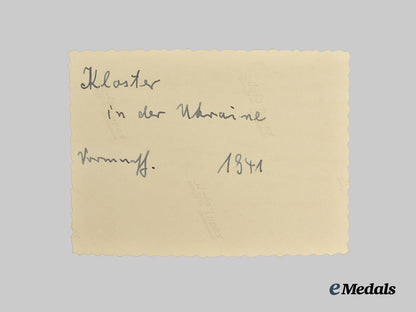 Kloster
in der Ukraine
Vormarsch. 1941
eMedals